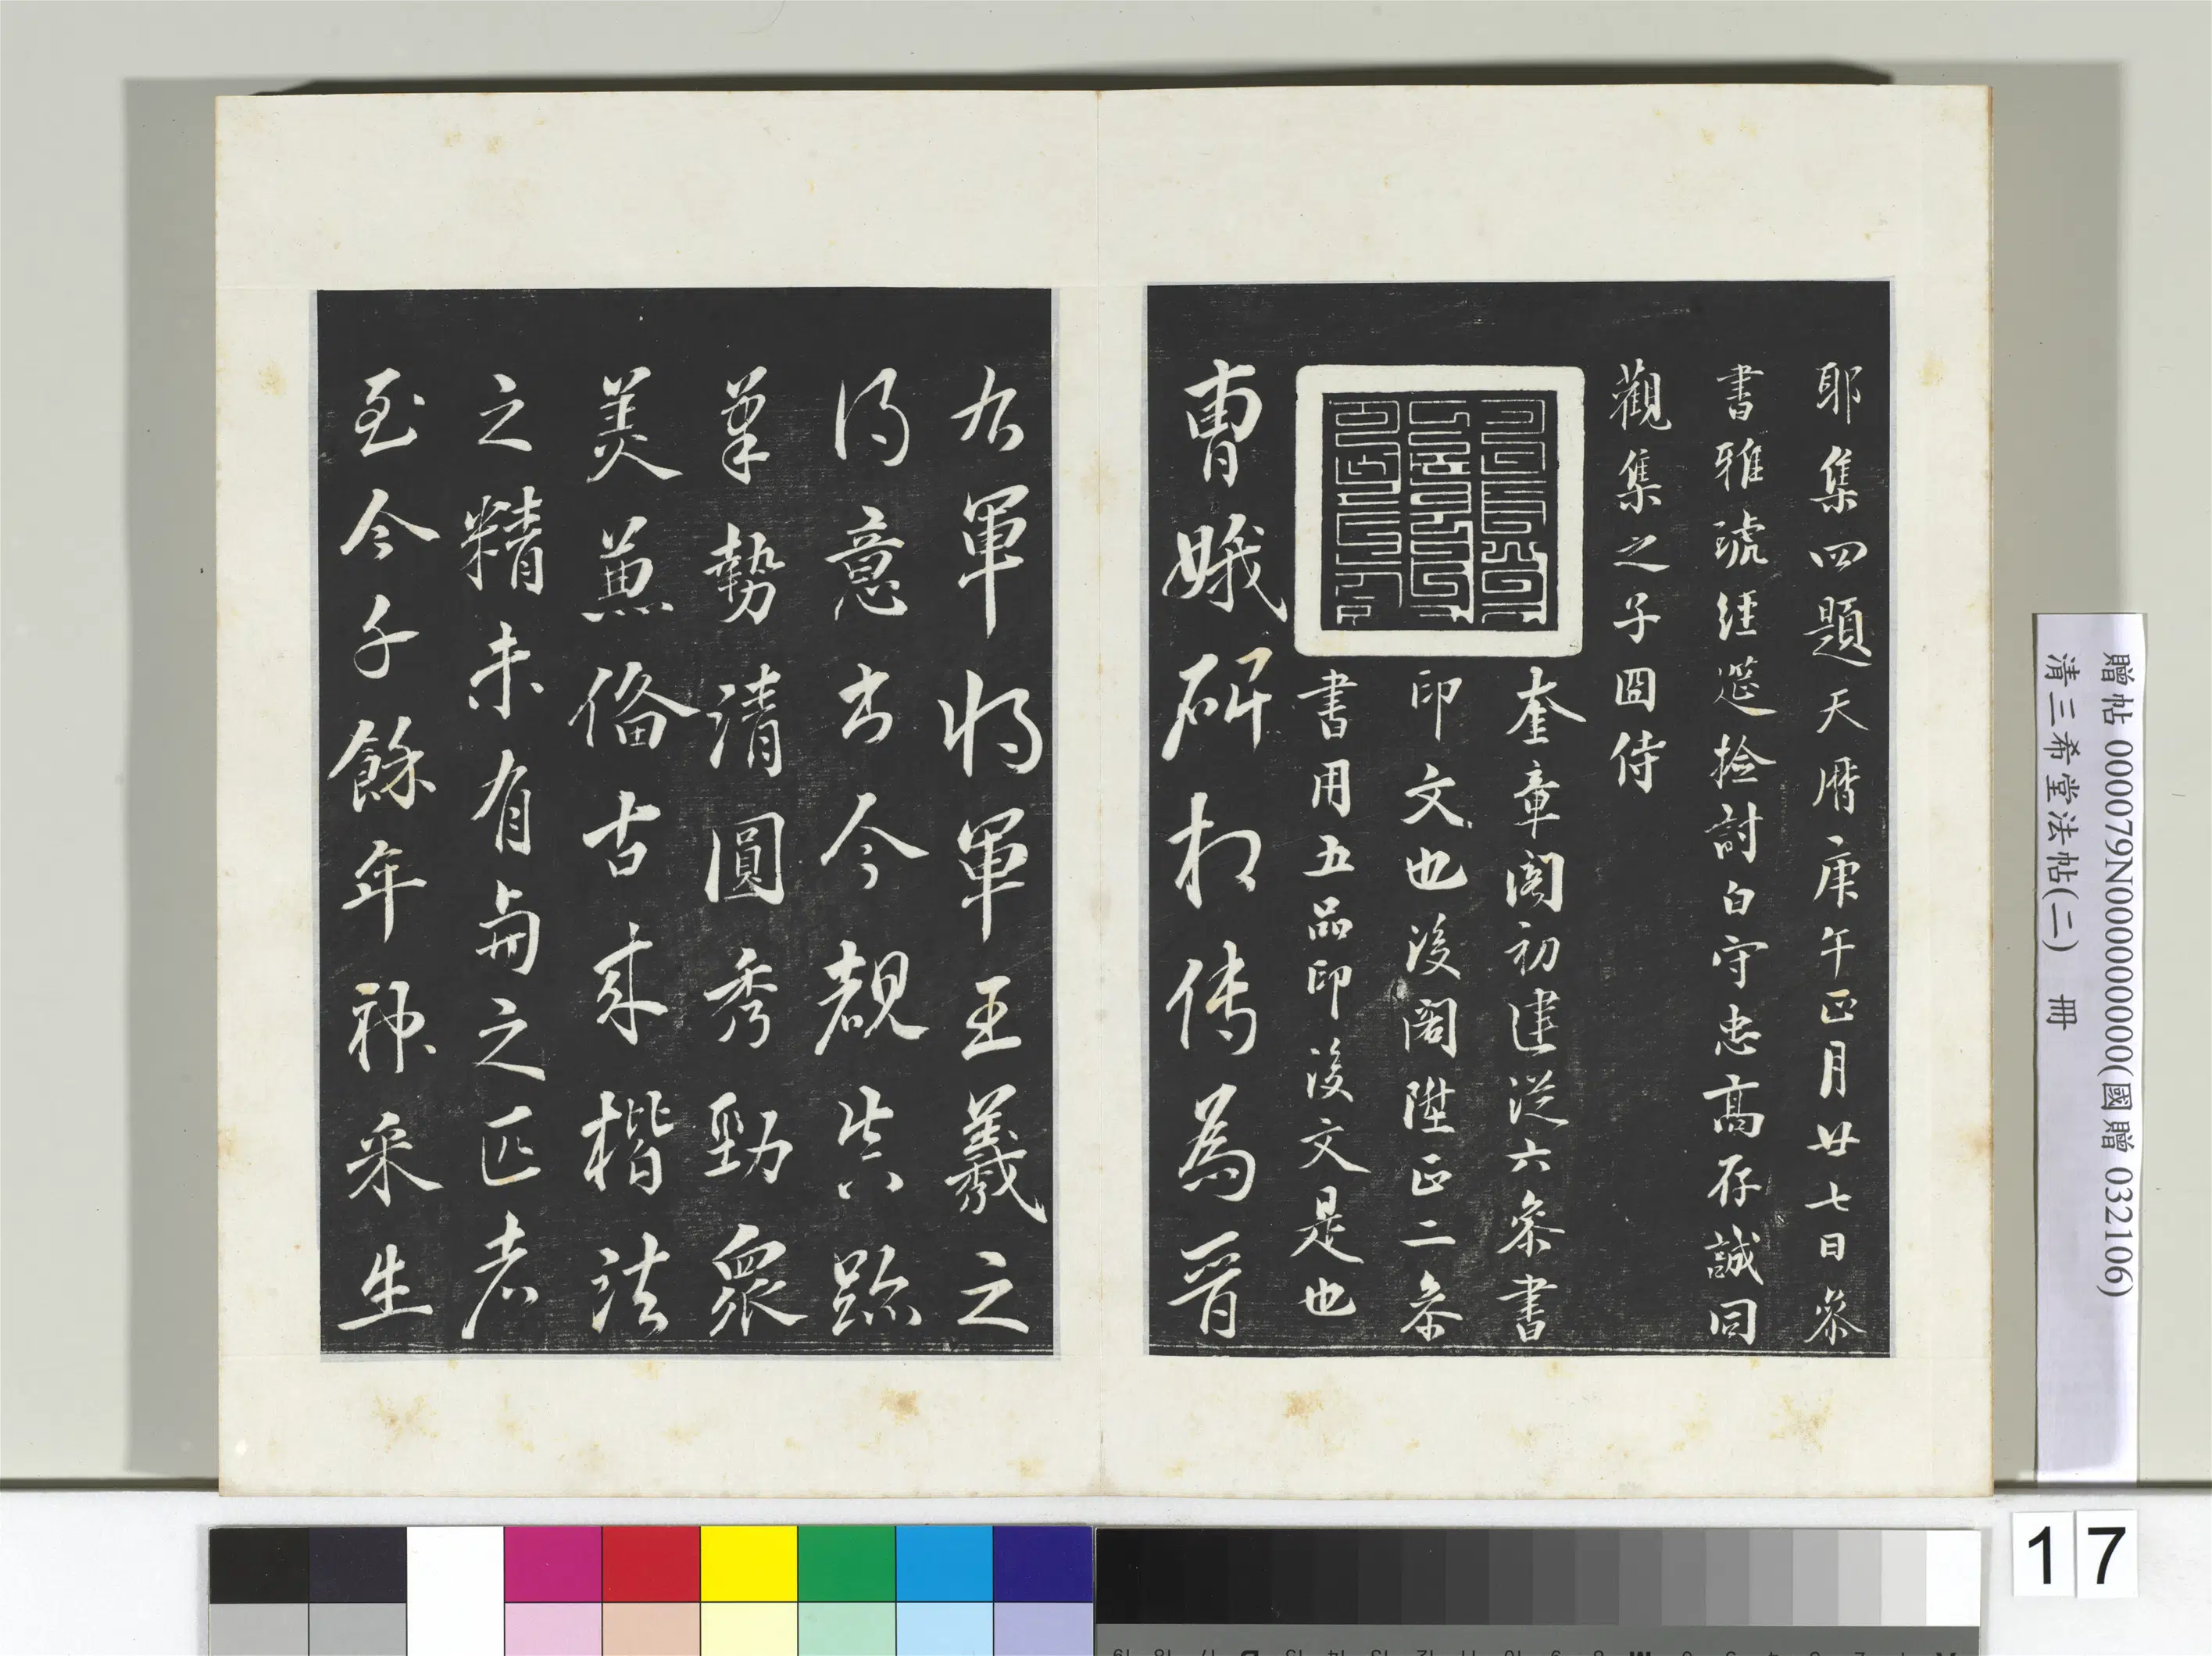 耶集四題天曆庚午正月廿七日叅
書雅琥經筵撿討白守忠高存誠同
觀集之子囙侍
奎章閣初建從六叅書
印文也後閣陞正二叅
書用五品印後文是也
曹娥碑相傳為晉
右軍將軍王羲之
得意書今覩真跡
筆勢清圓秀勁衆
美兼俻古來楷法
之精未有與之匹者
至今千餘年神采生
贈帖 000079N000000000(國贈 032106)
清三希堂法帖(二) 冊
17